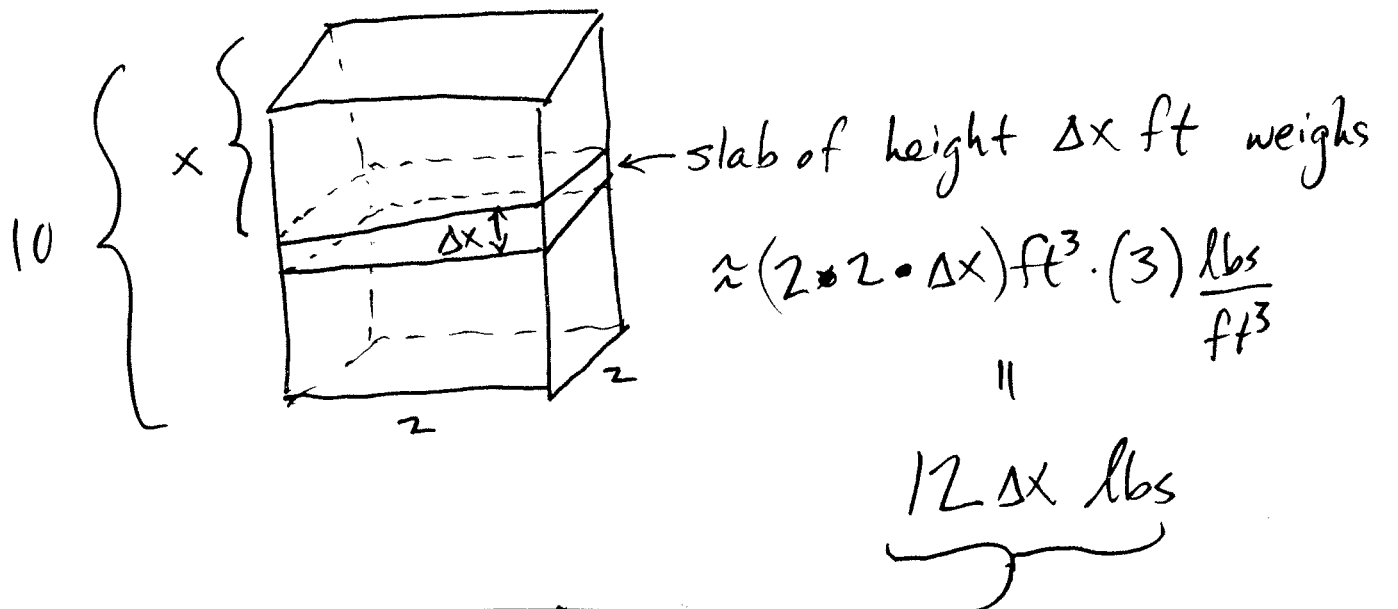 x
10
Δx
2
2
← slab of height Δx ft weighs
≈ (2 • 2 • Δx) ft³ · (3) lbs/ft³
=
12 Δx lbs